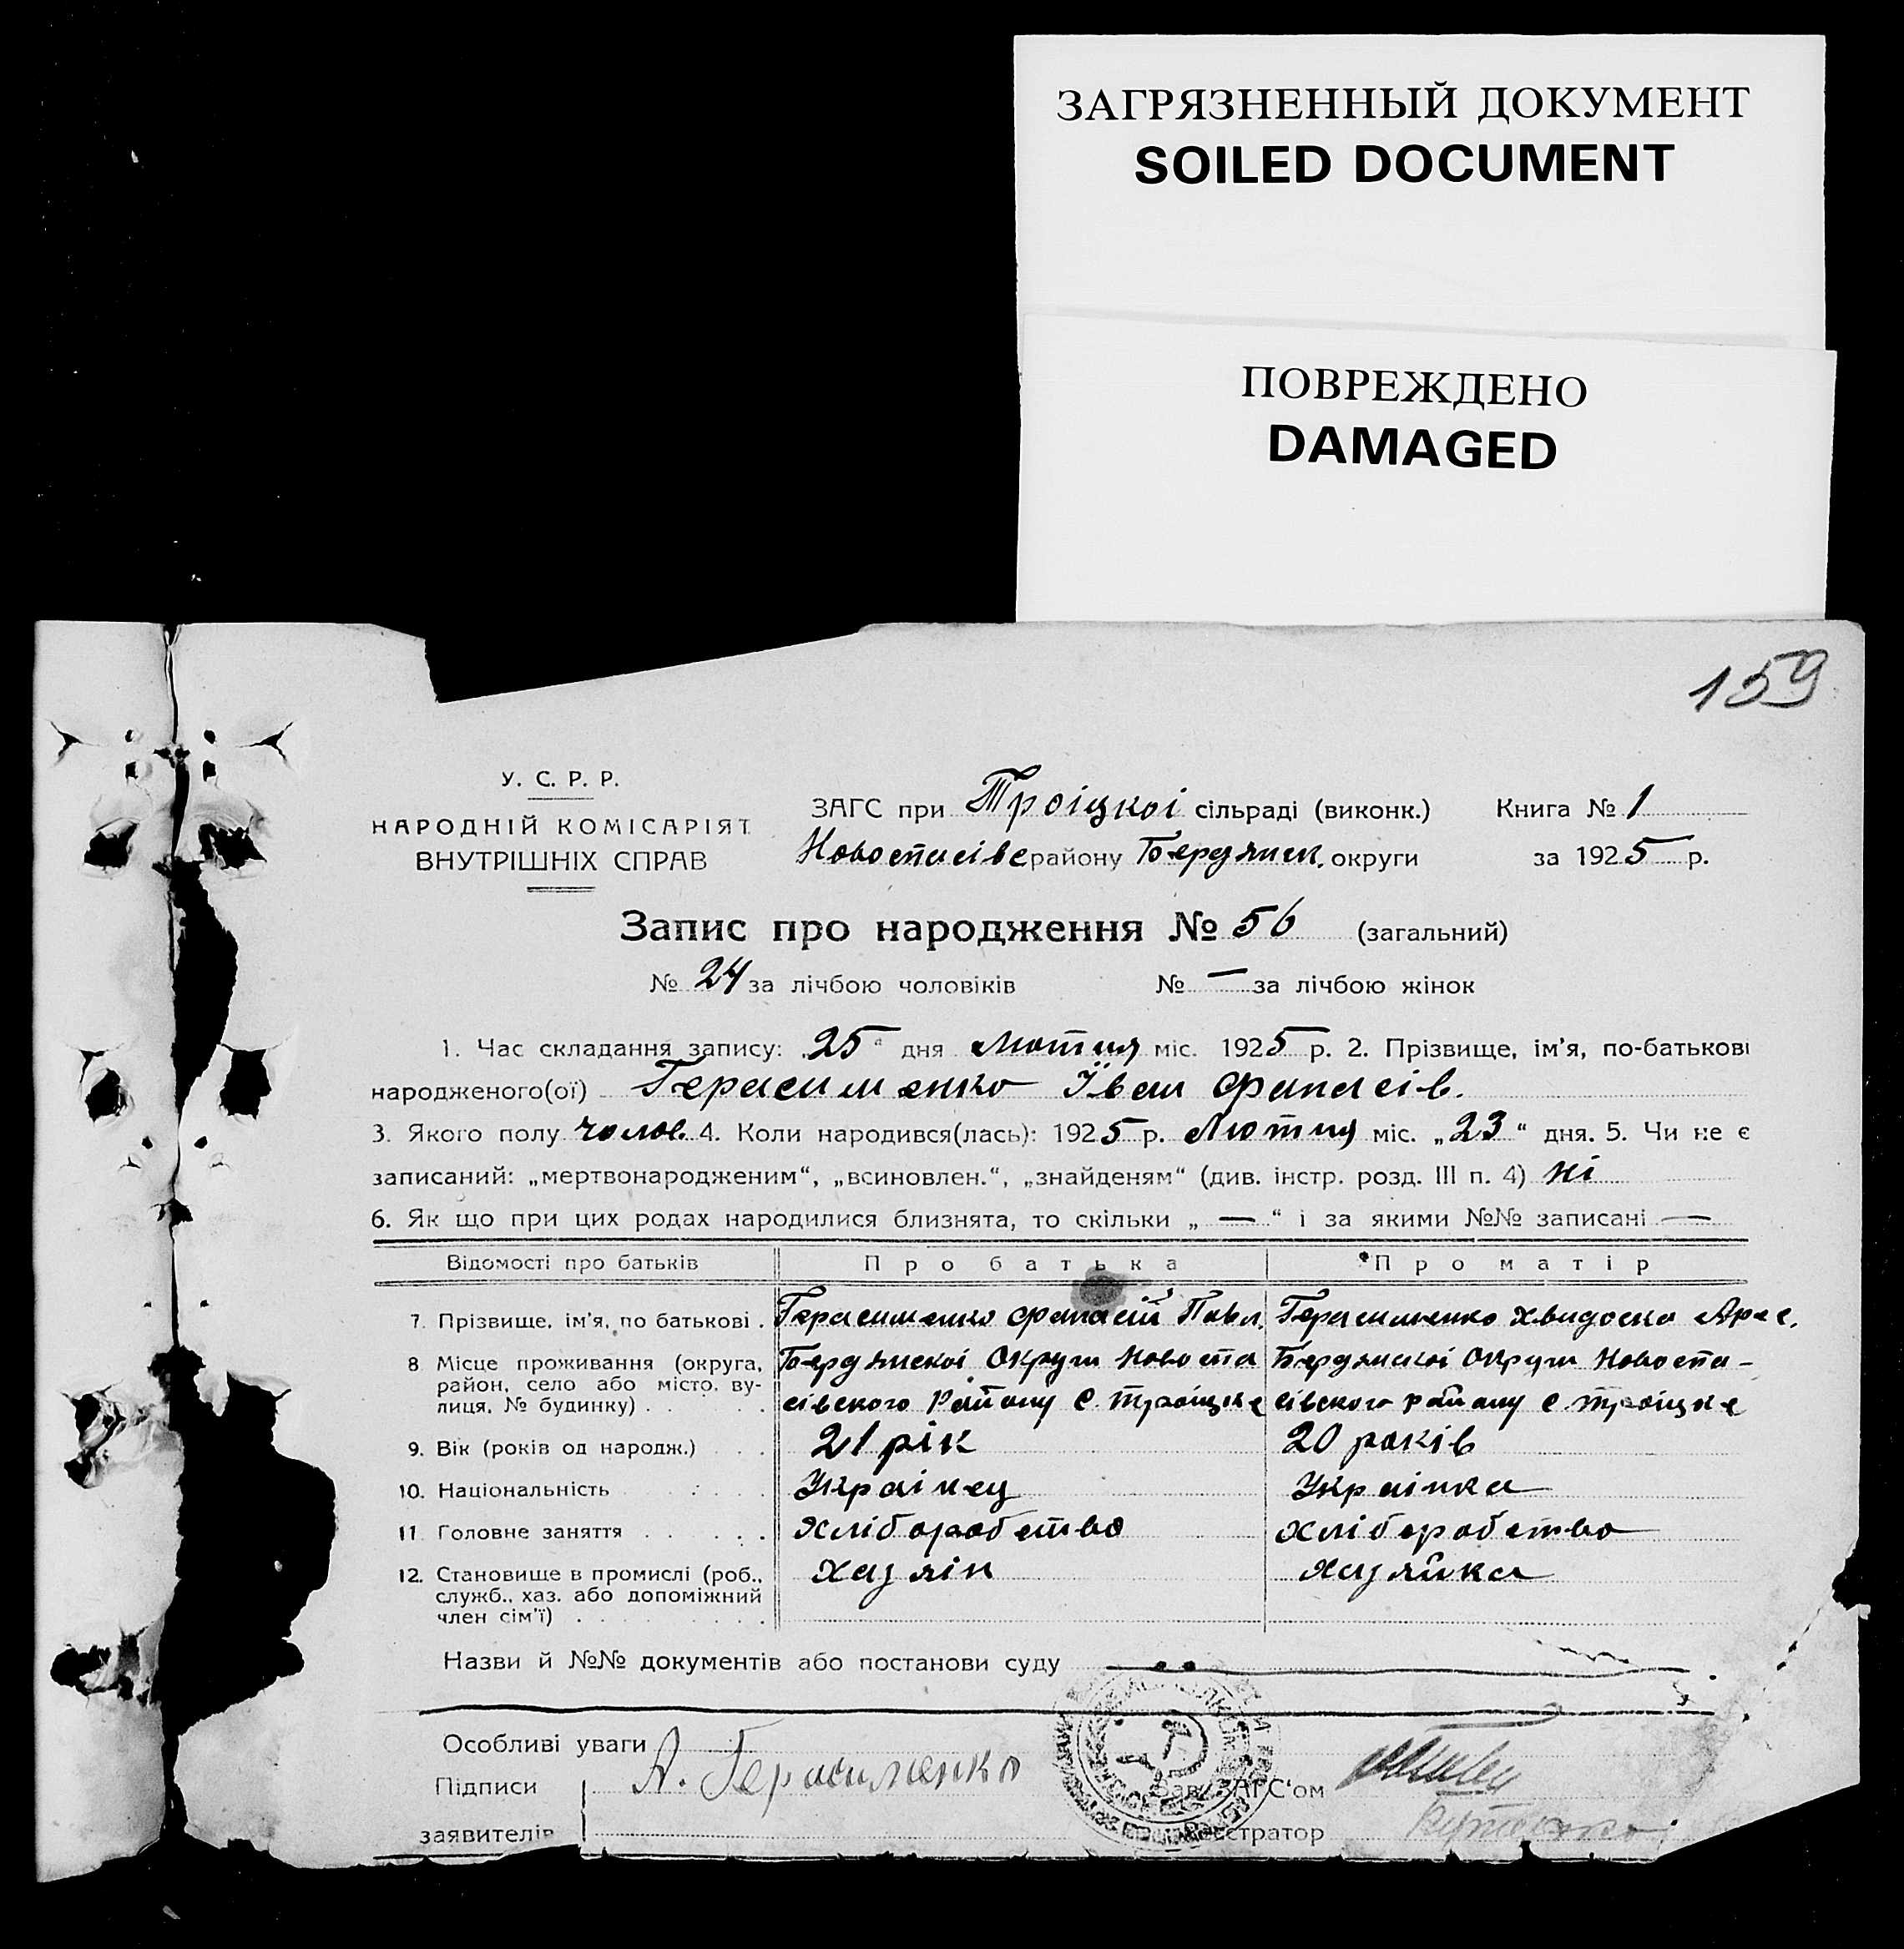 ЗАГРЯЗНЕННЫЙ ДОКУМЕНТ
SOILED DOCUMENT
ПОВРЕЖДЕНО
DAMAGED
159
У. С. Р. Р.
НАРОДНІЙ КОМІСАРІЯТ
ВНУТРІШНІХ СПРАВ
ЗАГС при Троіцкоі сільраді (виконк.) Книга № 1
Новоспасівс району Бердянск. округи за 1925 р.
Запис про народження № 56 (загальний)
№ 24 за лічбою чоловіків № — за лічбою жінок
1. Час складання запису: „25“ дня Лютня міс. 1925 р. 2. Прізвище, ім'я, по-батькові
народженого(ої) Герасименко Їван Фанасів.
3. Якого полу чолов. 4. Коли народився(лась): 1925 р. Лютня міс. „23“ дня. 5. Чи не є
записаний: „мертвонародженим“, „всиновлен.“, „знайденям“ (див. інстр. розд. III п. 4) ні
6. Як що при цих родах народилися близнята, то скільки „ — “ і за якими №№ записані —
Відомості про батьків Про батька Про матір
7. Прізвище, ім'я, по батькові . Герасименко Фанасій Павл. Герасименко Хвидоска
8 Місце проживання (округа, Бердянскоі Округи Новоспа Бердянскоі Округи Новоспа-
район, село або місто, ву- сівского Району С. Троіцке сівского Району С. Троіцке
лиця, № будинку) . . .
9. Вік (років од народж.) . . 21 рік 20 років
10. Національність . . . Украінец Украінка
11. Головне заняття . . . . . Хліборобство Хліборобство
12. Становище в промислі (роб., Хазяін Хазяйка
служб., хаз. або допоміжний
член сім'ї) . . . . .
Назви й №№ документів або постанови суду
Особливі уваги
Підписи А. Герасименко Зав. ЗАГС'ом
заявителів Реєстратор